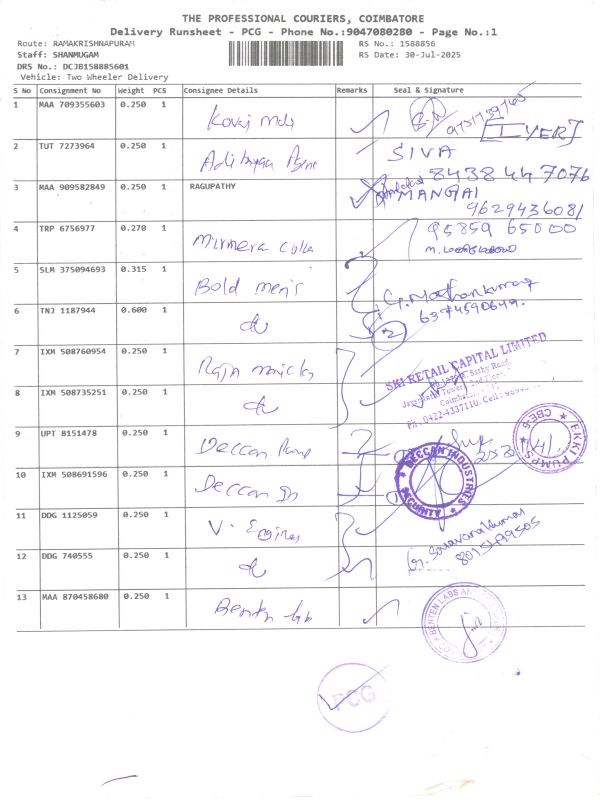 THE PROFESSIONAL COURIERS, COIMBATORE
Delivery Runsheet - PCG - Phone No.:9047080280 - Page No.:1
Route: RAMAKRISHNAPURAM
RS No.: 1588856
Staff: SHANMUGAM
RS Date: 30-Jul-2025
DRS No.: DCJB158885601
Vehicle: Two Wheeler Delivery
S No Consignment No Weight PCS Consignee Details Remarks Seal & Signature
1 MAA 709355603 0.250 1
[IYER]
2 TUT 7273964 0.250 1 SIVA
8438447076
3 MAA 909582849 0.250 1 RAGUPATHY MANGAI
9629436081
4 TRP 6756977 0.270 1 95859 65000
5 SLM 375094693 0.315 1 Bold men's
6 TNJ 1187944 0.600 1 6374590649.
2
7 IXM 508760954 0.250 1
SKI RETAIL CAPITAL LIMITED
8 IXM 508735251 0.250 1
Coimbatore
9 UPT 8151478 0.250 1 Deccan Pump
EKKI PUMPS CBE-6
10 IXM 508691596 0.250 1 Deccan
DECCAN INDUSTRIES SECURITY
11 DDG 1125059 0.250 1 V. Engines
12 DDG 740555 0.250 1 G. Saravanakumar
13 MAA 870458680 0.250 1 Benten lab
BENTEN LABS
PCG